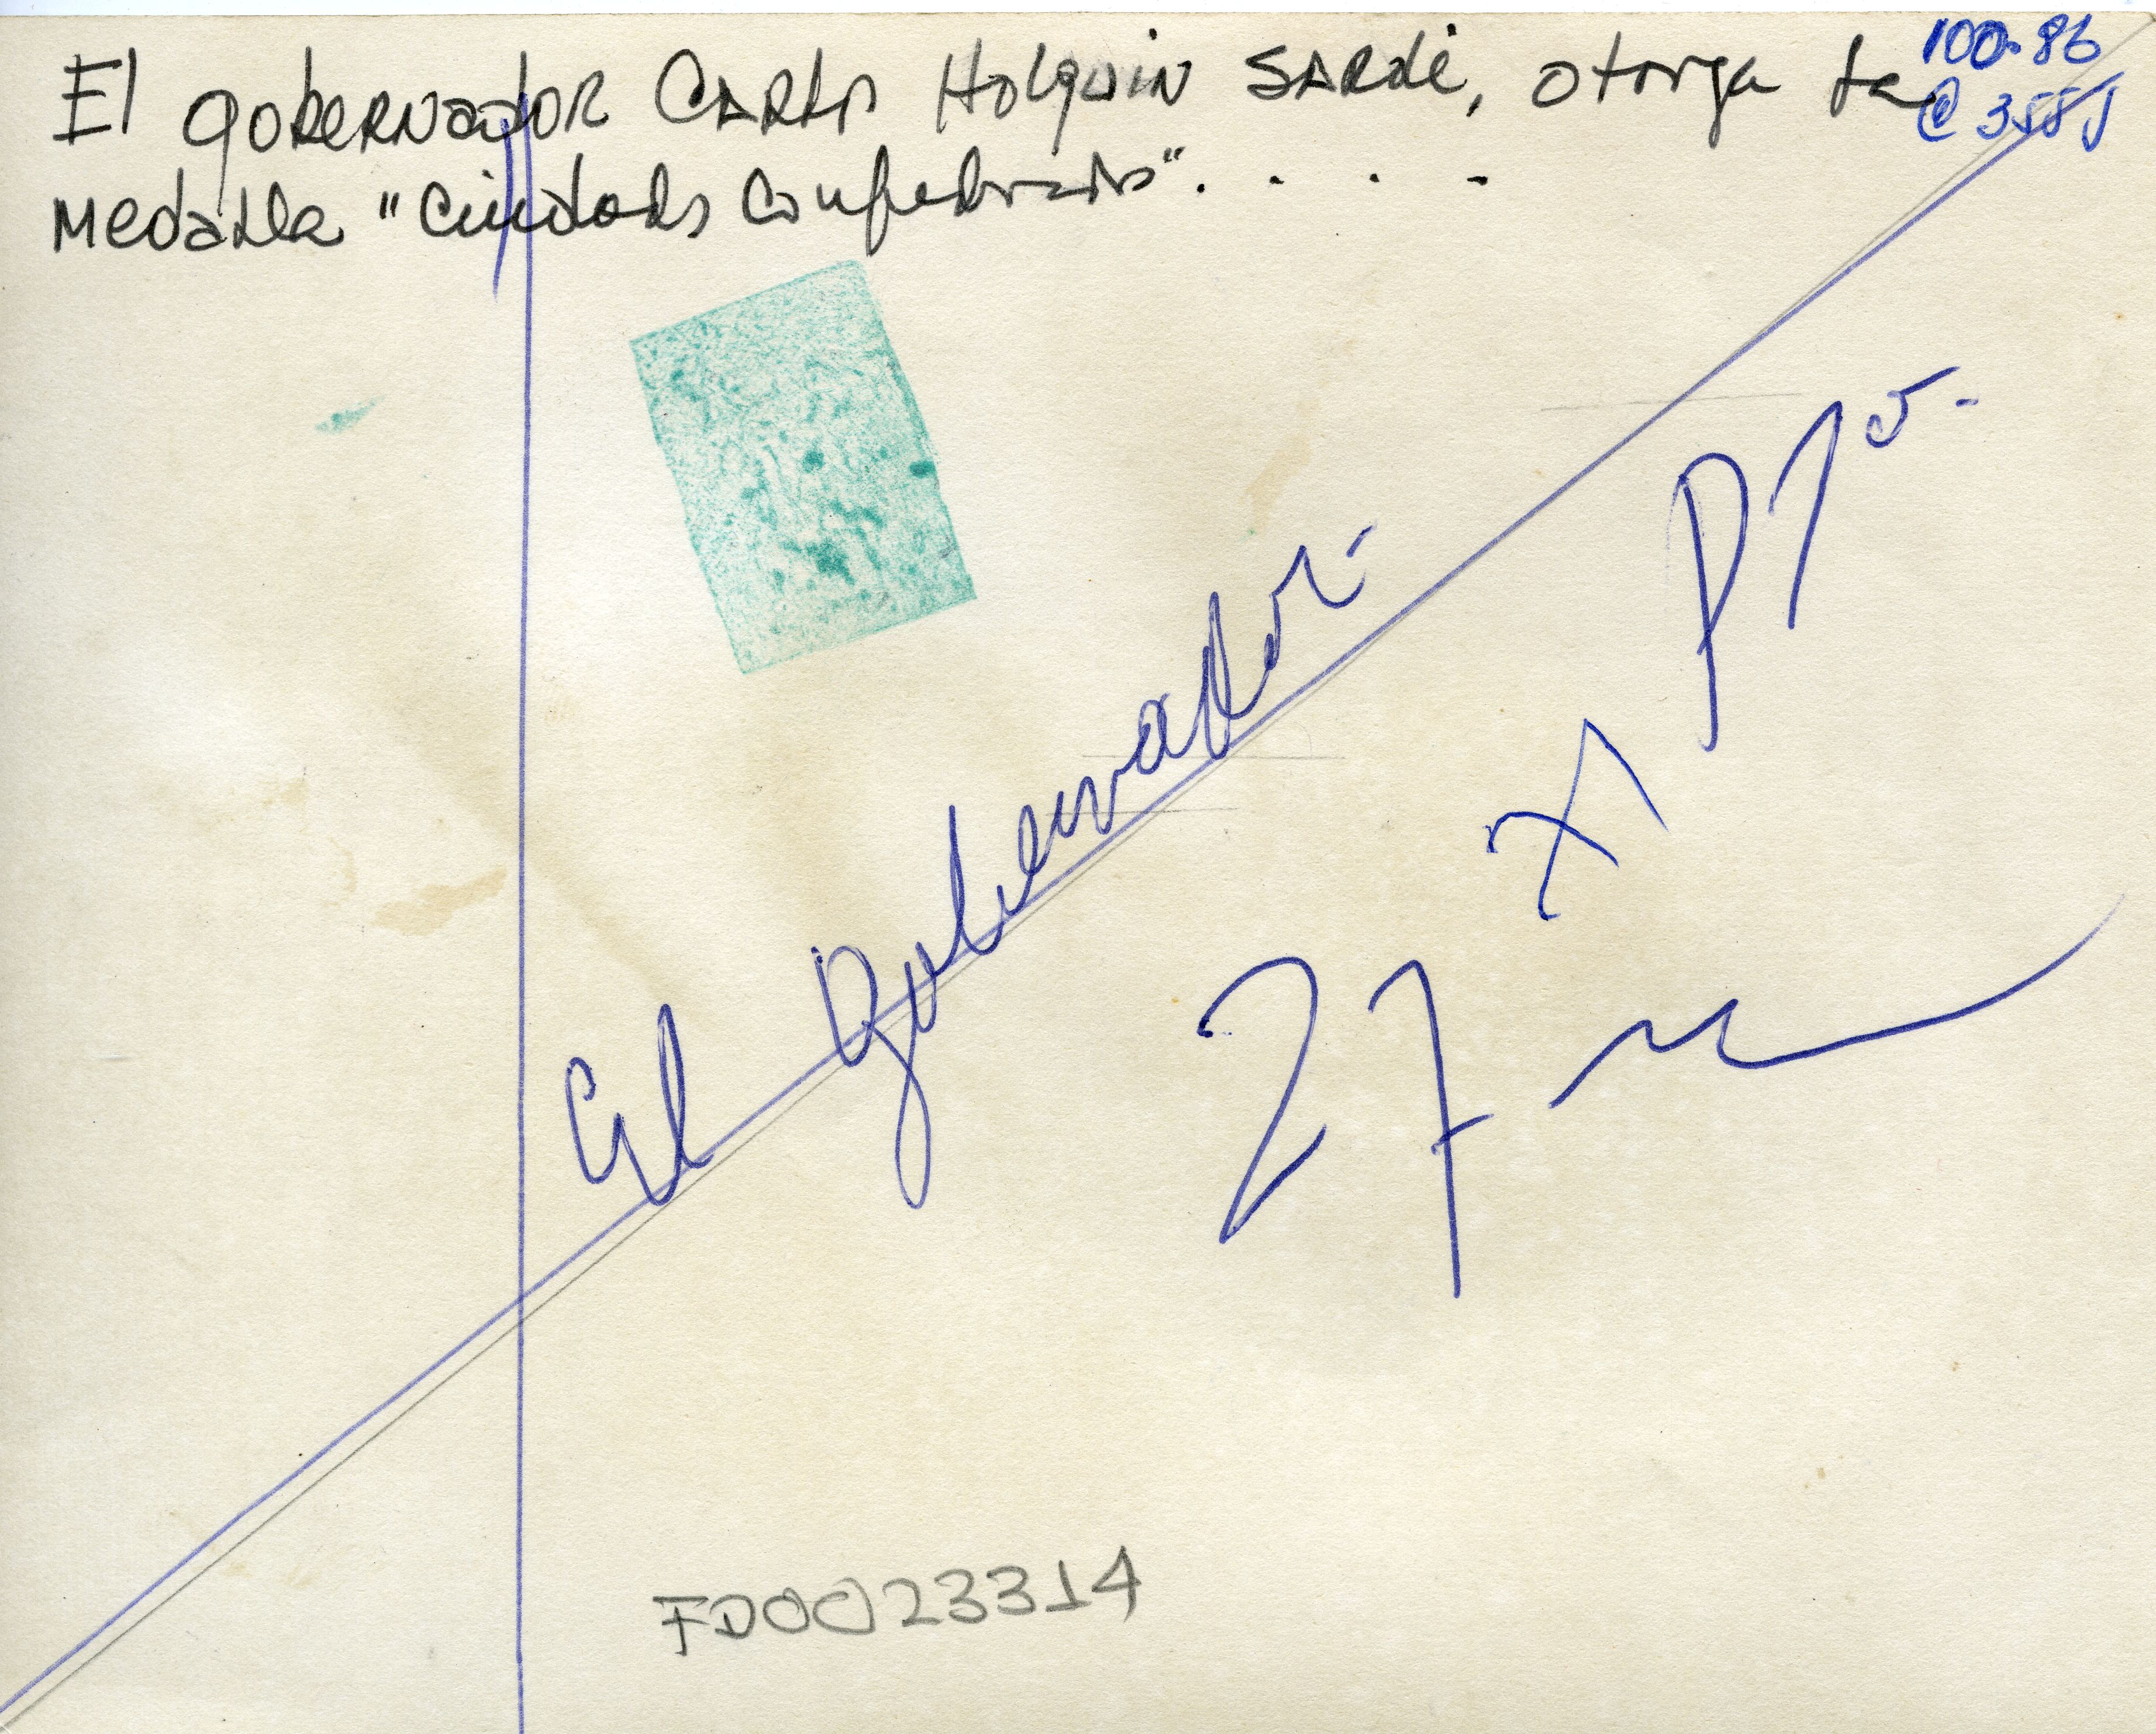 El gobernador Carlos Holguin Sardi, otorga la
medalla "Ciudades Confederadas". . . .
100-86
El Gobernador.
27
FD0023314